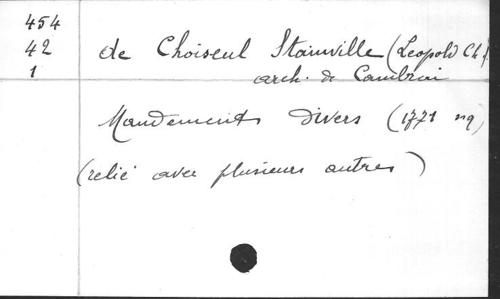 454
42 de Choiseul Stainville (Leopold Ch.)
1 arch. de Cambrai
Mandements divers (1771 nq)
(relié avec plusieurs autres)